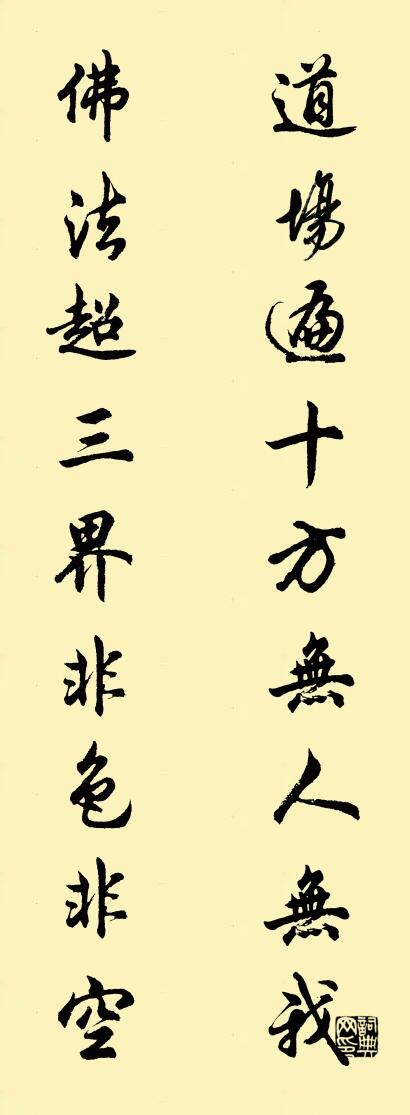 道場遍十方無人無我
佛法超三界非色非空
詞典网印